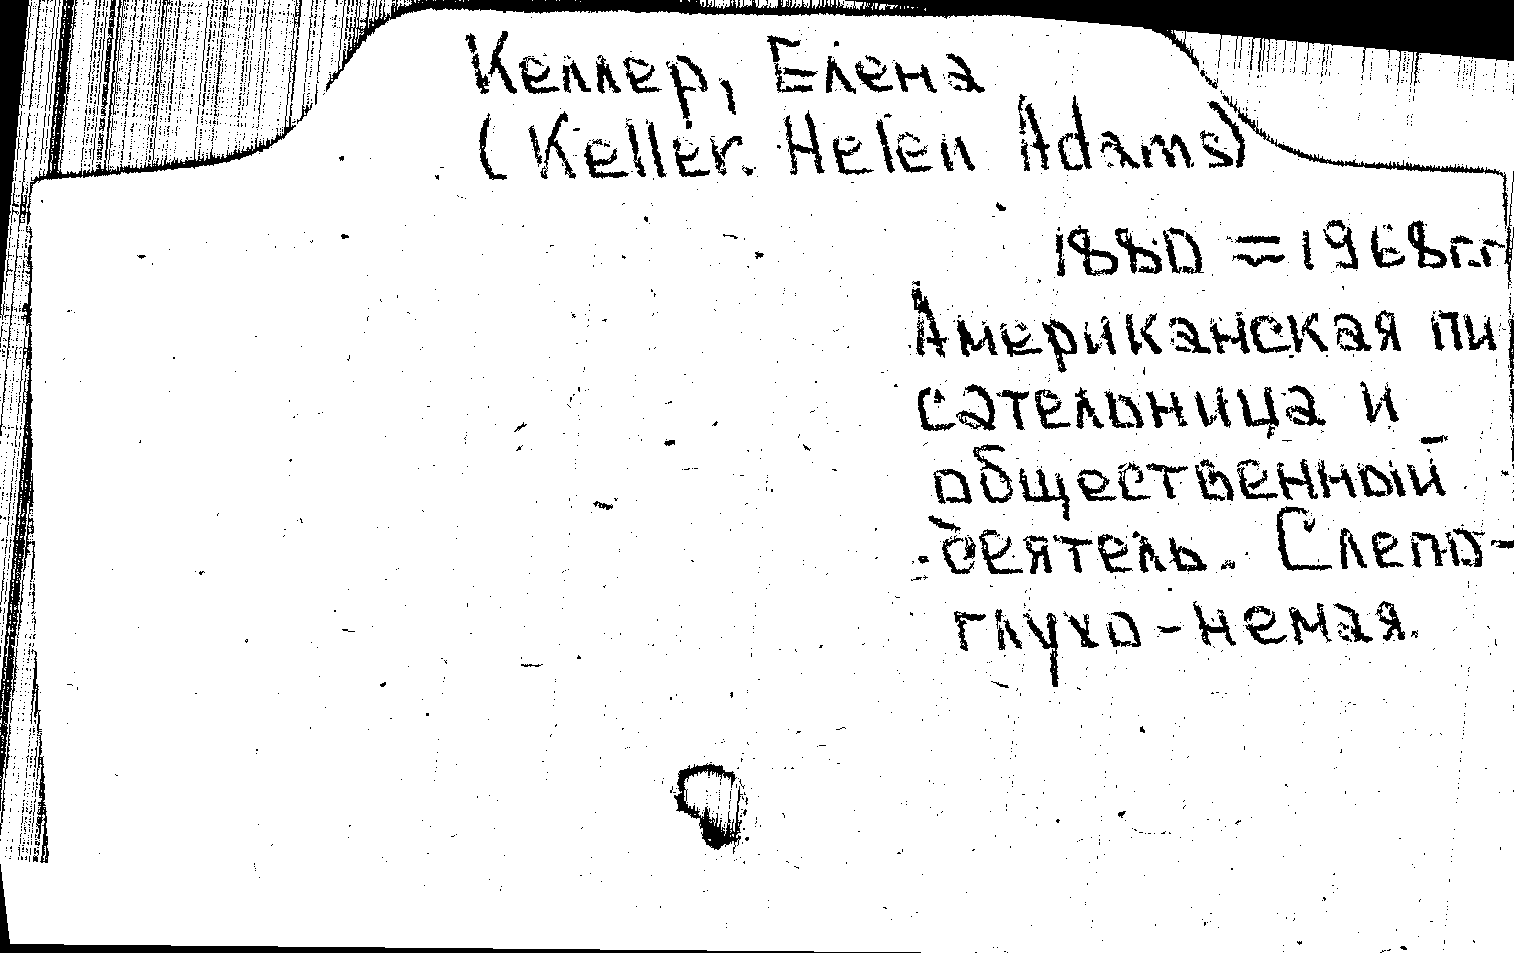 Келлер, Елена
(Keller. Helen Adams)
1880 = 1968г.г
Американская пи
сательница и
общественный
деятель. Слепо-
глухо-немая.